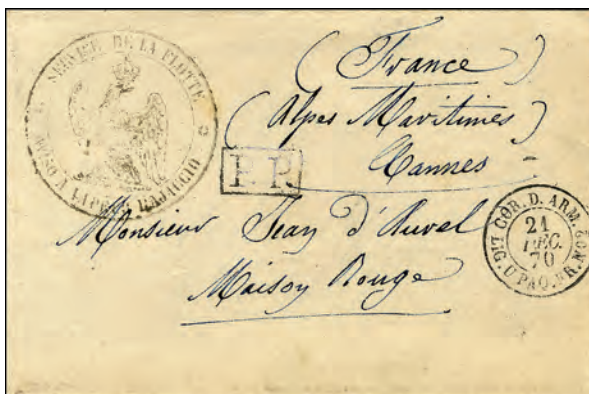 SERVICE DE LA FLOTTE
( France )
( Alpes Maritimes )
Cannes
P.P.
Monsieur Jean d'Auvel
Maison Rouge
COR. D. ARM.
21
DEC.
70
PAQ. FR.